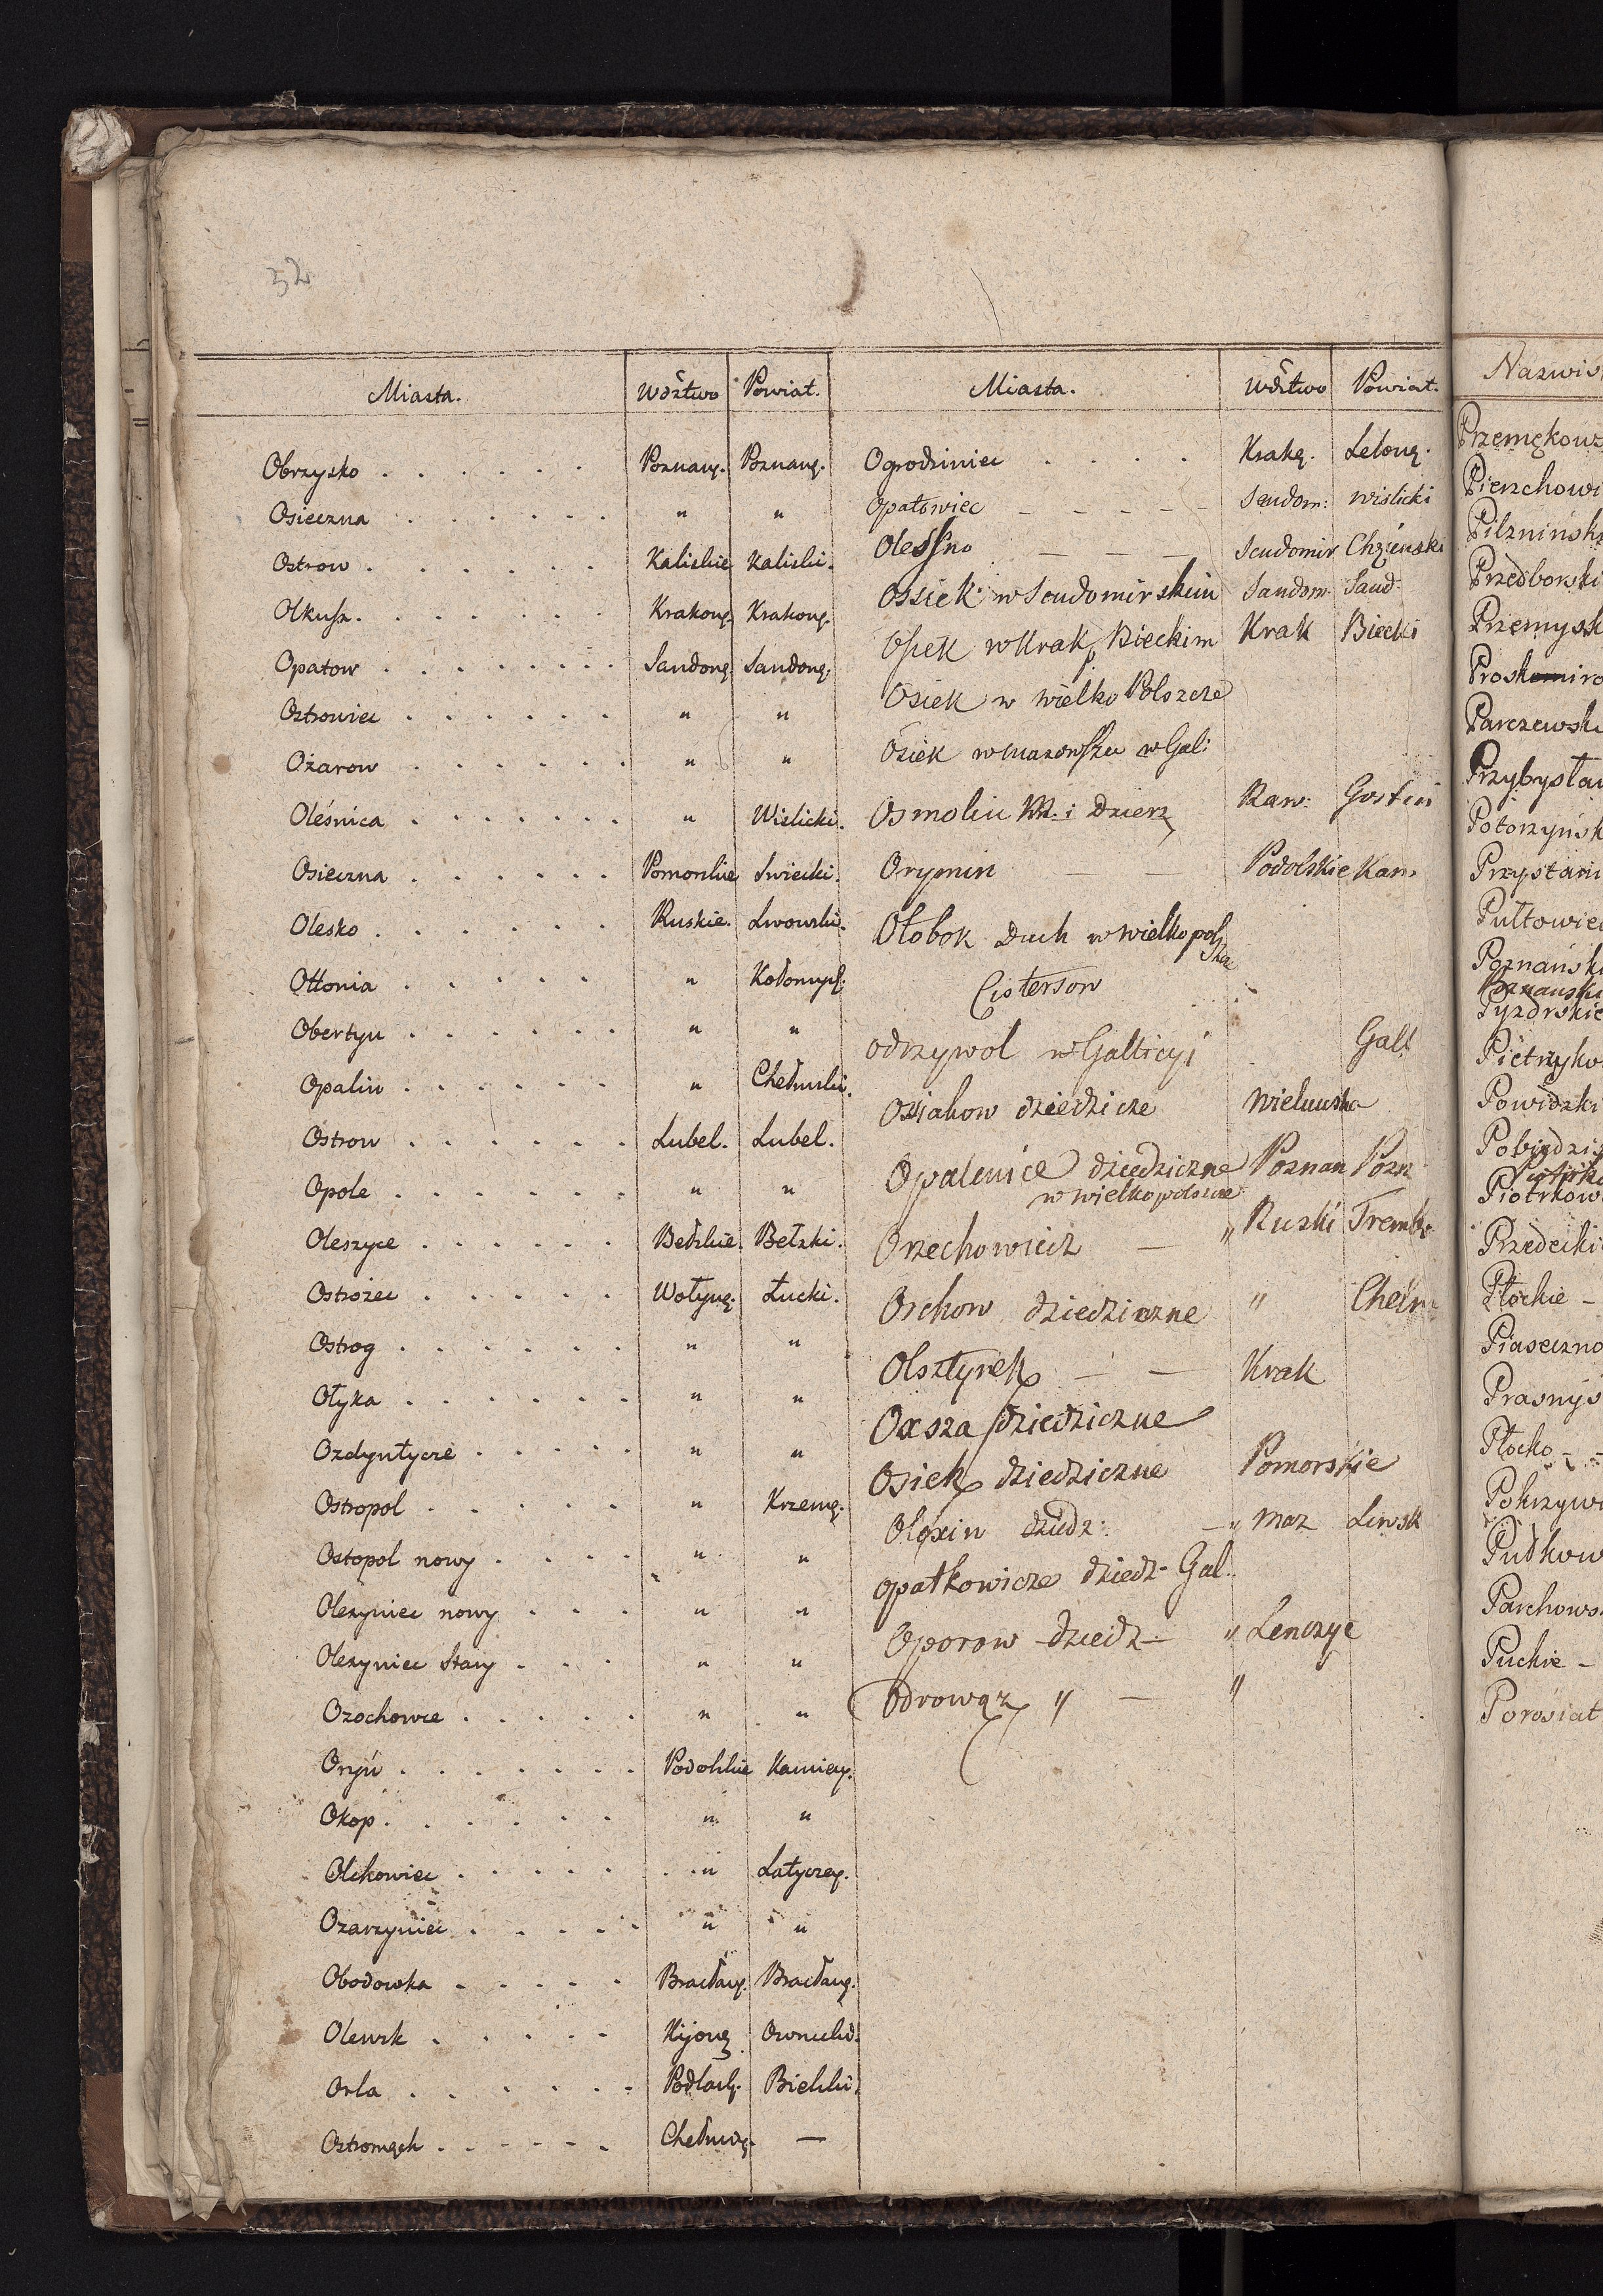 52
Miasta. Wdztwo Powiat.
Obrzysko Poznanȩ. Poznanȩ.
Osieczna " "
Ostrow Kaliskie Kaliski.
Olkusz Krakowȩ. Krakowȩ.
Opatow Sandomȩ. Sandomȩ.
Ostrowiec " "
Ożarow " "
Oleśnica " Wislicki.
Osieczna Pomorskie Swiecki.
Olesko Ruskie. Lwowski.
Ottonia " Kołomyȩ.
Obertyn " "
Opalin " Chełmski.
Ostrow Lubel. Lubel.
Opole " "
Oleszyce Bełzkie. Bełzki.
Ostrożec Wołynȩ. Łucki.
Ostrog " "
Ołyka " "
Ozdyutycze " "
Ostropol " Krzemȩ.
Ostopol nowy " "
Olexyniec nowy " "
Olexyniec Stary " "
Ozochowce " "
Oryń Podolskie Kamieȩ.
Okop " "
Olchowiec " Latyczeȩ.
Ozarzyniec " "
Obodowka Bracławȩ. Bracławȩ.
Olewsk Kijowȩ
Orla Podlasȩ. Bielski.
Chełmiȩ. —
Miasta. Wdztwo Powiat.
Ogrodziniec Krakȩ. Lelowȩ.
Opatowiec Sendom: wislicki
Olesſno Sendomir Chȩienski
Ossiek w Sendomirskim Sandom. Sand
Osiek w Krak p Bieckim Krak Biecki
Osiek w wielko Polszcze
Osiek w mazowſzu w Gal:
Osmolin Kr. i Dzierz Raw: Gostin
Orynin Podolskie Kam
Ołobok Duch w wielkopolszcze
Cisterson
odrzywol w Gallicyi Gall
Osiakow dziedzicze wielunska
Opalenice dziedziczne Poznan Pozn
w wielkopolszcze
Orzechowicz — " Ruski Trembo
Orchow dziedziczne " Chełm
Olsztynek — — Krak
Oxsza dziedziczne
Osiek dziedziczne Pomorskie
Olexin dziedz: — " Maz Liwsk
opatkowicze dziedz- Gal.
Oporow dziedz — " Lenczyc
Odrowąz " — "
Nazwis
Pierzchowi
Pilznińsk
Przedborski
Przemysk
Parczewski
Przybysław
Potorzyńsk
Przystani
Pułtowie
Poznańsk
Poznanski
Pyzdrskie
Pietrzyko
Powidzki
Pobiedzis
Piotrkow
Przedecki
Płockie -
Piaseczno
Prasnys
Płocko - -
Pokrzyw
Putkow
Parchows
Puckie -
Porosiat